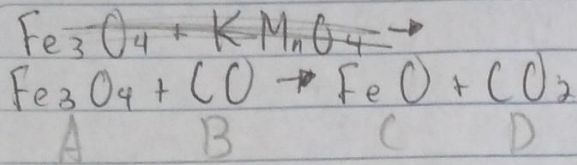 Fe3O4 + KMnO4 →
Fe3O4 + CO → FeO + CO2
A B C D